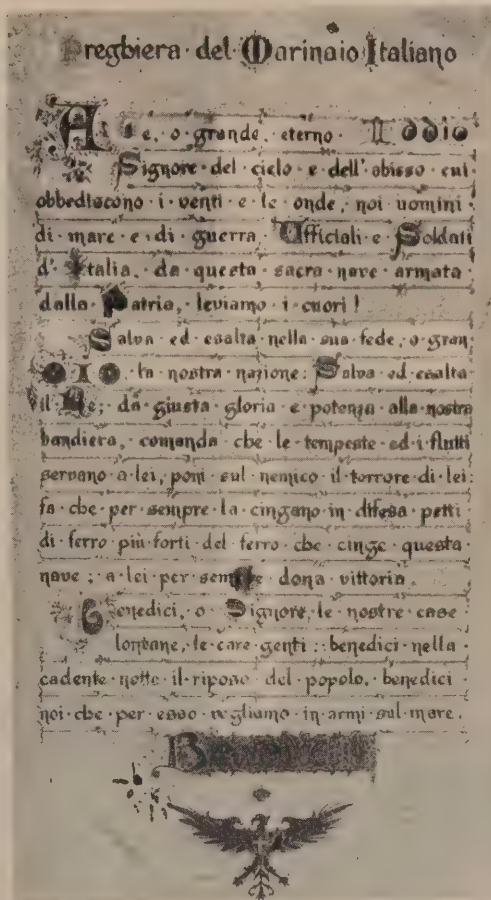 Preghiera · del · Marinaio Italiano
A Te, o · grande · eterno · Iddio
Signore · del · cielo · e · dell' · abisso · cui ·
obbediscono · i · venti · e · le · onde, · noi · uomini ·
di · mare · e · di · guerra · Ufficiali · e · Soldati
d' · Italia, · da · questa · sacra · nave · armata ·
dalla · Patria, · leviamo · i · cuori !
Salva · ed · esalta · nella · sua · fede, · o · gran
DIO · la · nostra · nazione : Salva · ed · esalta
il · Re; · da · giusta · gloria · e · potenza · alla · nostra
bandiera, · comanda · che · le · tempeste · ed · i · flutti
servano · a · lei, · poni · sul · nemico · il · terrore · di · lei :
fa · che · per · sempre · la · cingano · in · difesa · petti ·
di · ferro · più · forti · del · ferro · che · cinge · questa ·
nave ; · a · lei · per · sempre · dona · vittoria .
Benedici, · o · Signore, · le · nostre · case ·
lontane, · le · care · genti : · benedici · nella ·
cadente · notte · il · riposo · del · popolo, · benedici ·
noi · che · per · esso · vegliamo · in · armi · sul · mare .